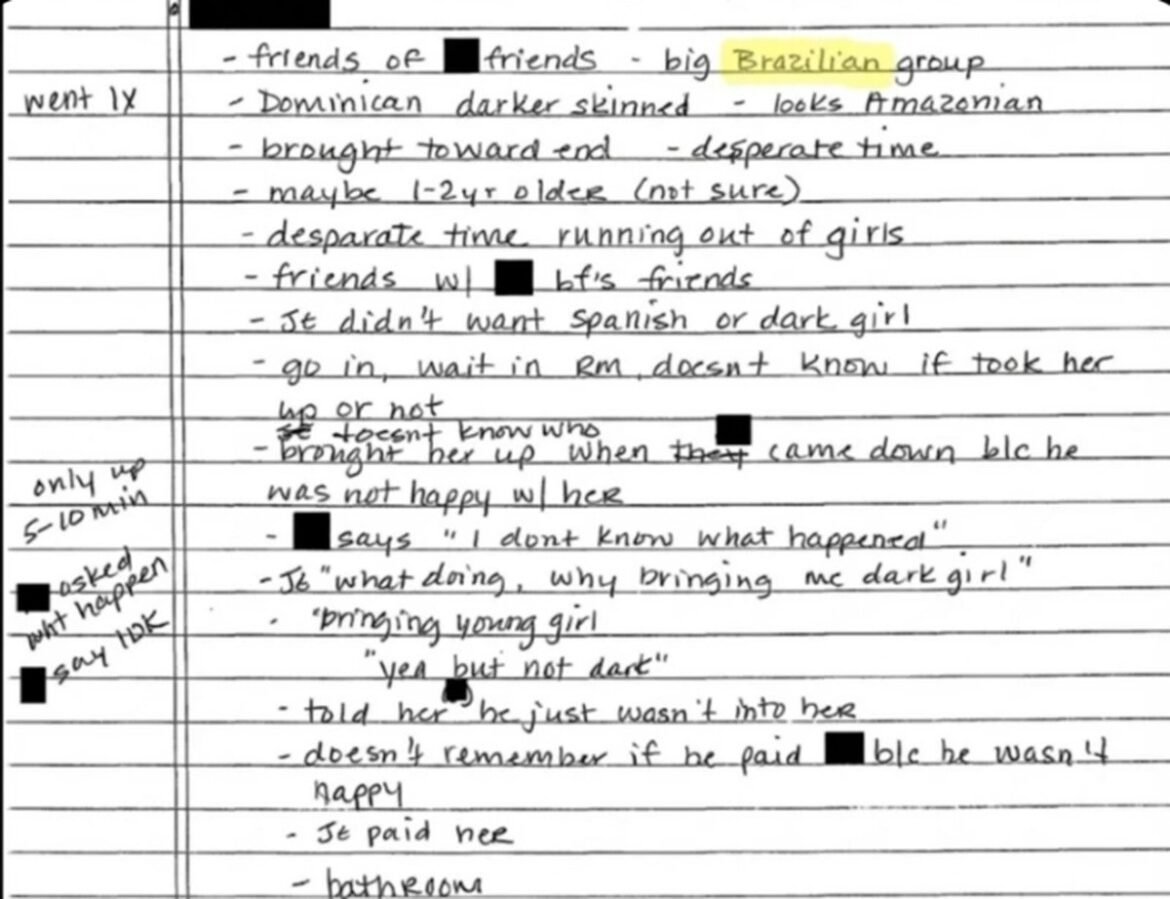 - friends of friends - big Brazilian group
went 1x
- Dominican darker skinned - looks Amazonian
- brought toward end - desperate time
- maybe 1-2yr older (not sure)
- desparate time running out of girls
- friends w/ bf's friends
- JE didn't want spanish or dark girl
- go in, wait in Rm, doesnt know if took her
up or not
doesnt know who
- brought her up when they came down b/c he
was not happy w/ her
only up
5-10 min
- says "I dont know what happened"
asked
wht happen
say IDK
- JE "what doing, why bringing me dark girl"
- "bringing young girl
"yea but not dark"
- told her he just wasn't into her
- doesn't remember if he paid b/c he wasn't
happy
- JE paid her
- bathroom